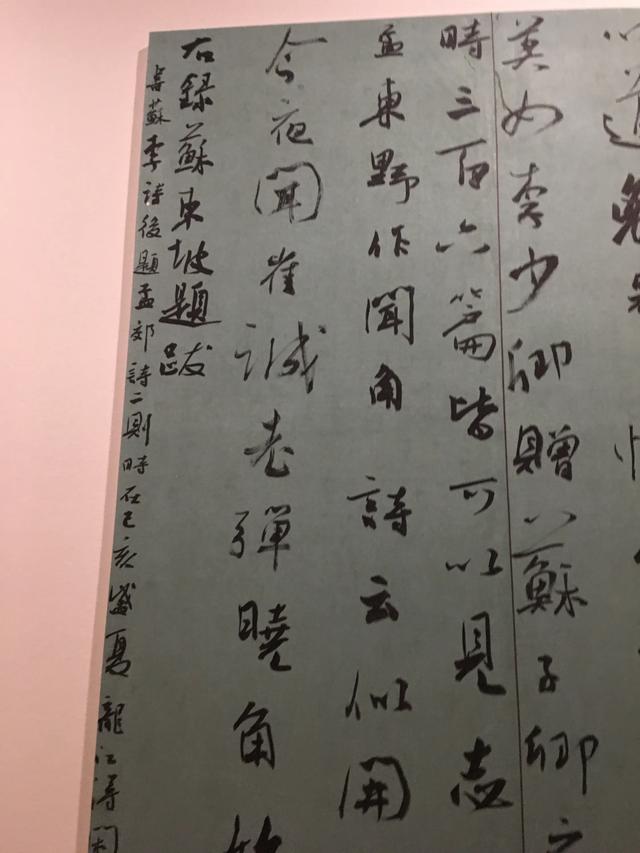 以道
莫如李少卿贈蘇子卿之
時三百六篇皆可以見志
孟東野作聞角詩云似開
今夜聞崔誠老彈曉角
右録蘇東坡題跋
書蘇李詩後題孟郊詩二則時在己亥盛夏龍江濤